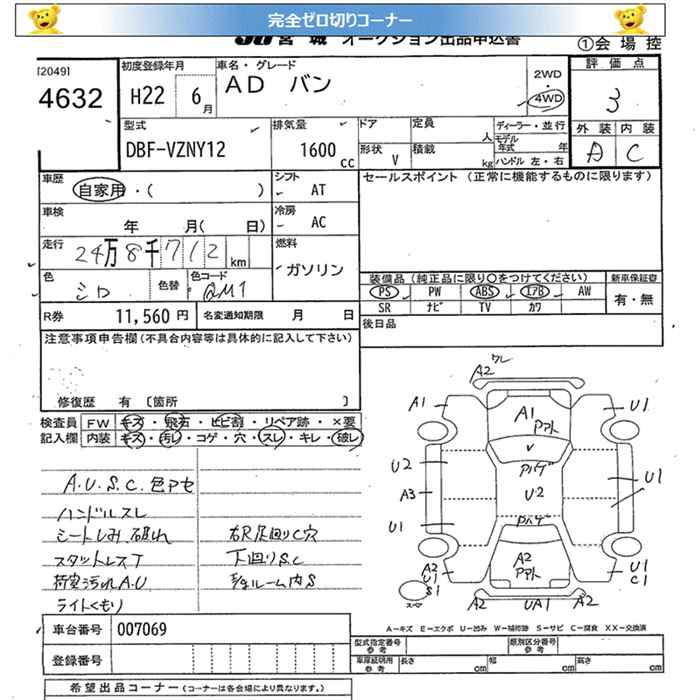 完全ゼロ切りコーナー
JU宮城 オークション出品申込書
①会場控
[2049]
4632
初度登録年月
H22 6月
車名・グレード
AD バン
2WD
4WD
評価点
3
外装 内装
A C
型式
DBF-VZNY12
排気量
1600 cc
ドア
定員 人
形状 V
積載 kg
ディーラー・並行
モデル年式 年
ハンドル 左・右
車歴
自家用・( )
シフト
AT
セールスポイント (正常に機能するものに限ります)
車検
年 月( 日)
冷房
AC
走行
24万8千712km
燃料
ガソリン
色
シロ
色替
色コード
QM1
装備品(純正品に限り○をつけてください)
新車保証書
PS PW ABS エアB AW
SR ナビ TV カワ
有・無
R券
11,560円
名変通知期限 月 日
後日品
注意事項申告欄(不具合内容等は具体的に記入して下さい)
修復歴 有 〔箇所 〕
検査員記入欄
FW キズ・飛石・ヒビ割・リペア跡・×要
内装 キズ・汚レ・コゲ・穴・スレ・キレ・破レ
A.U.S.C.色アセ
ハンドルスレ
シートしみ 破れ
右R足回りC穴
スタットレスT
下廻りS.C
荷室汚れA.U
ライトくもり
A2
A1
A1
U1
U2
U2
U1
A3
U1
A2
A2
U1
S1
スペア
U1
C1
A2 UA1 A2
A-キズ E-エクボ U-凹み W-補修跡 S-サビ C-腐食 XX-交換済
車台番号
007069
登録番号
型式指定番号 参考
類別区分番号 参考
車庫証明用 参考
長さ cm
幅 cm
高さ cm
希望出品コーナー(コーナーは各会場により異なります)